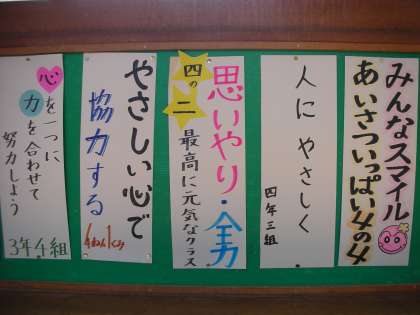 みんなスマイル
あいさついっぱい4の4
人に やさしく
四年三組
思いやり・全力
四の二
最高に元気なクラス
やさしい心で
協力する
4ねん1くみ
心を一つに
力を合わせて
努力しよう
3年4組